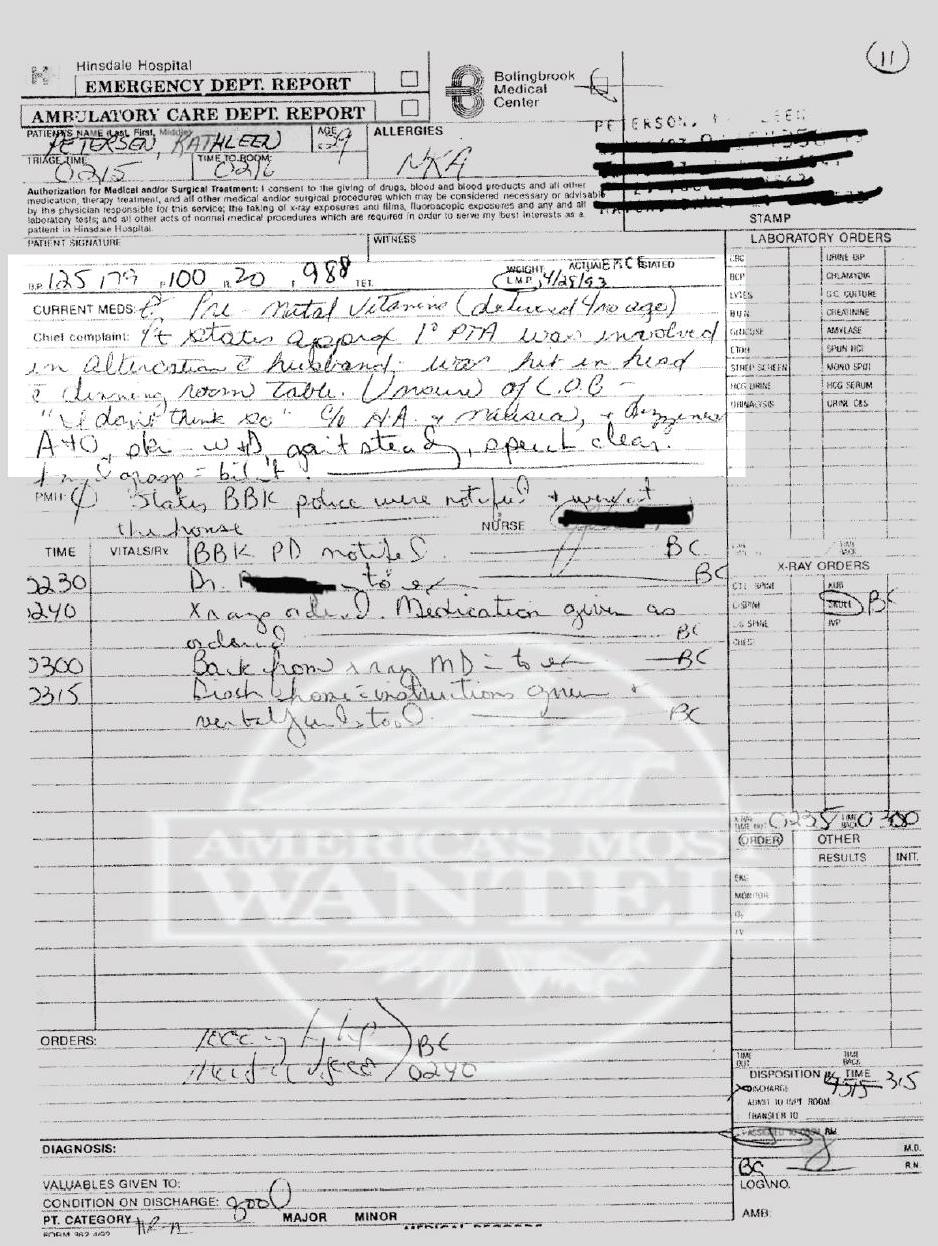 11
Hinsdale Hospital
EMERGENCY DEPT. REPORT
AMBULATORY CARE DEPT. REPORT
Bolingbrook
Medical
Center
PATIENT'S NAME (Last, First, Middle)
PETERSEN, KATHLEEN
AGE
29
ALLERGIES
NKA
PETERSON, K LEEN
TRIAGE TIME
0215
TIME TO ROOM:
0216
Authorization for Medical and/or Surgical Treatment: I consent to the giving of drugs, blood and blood products and all other
medication, therapy treatment, and all other medical and/or surgical procedures which may be considered necessary or advisable
by the physician responsible for this service; the taking of x-ray exposures and films, fluoroscopic exposures and any and all
laboratory tests; and all other acts of normal medical procedures which are required in order to serve my best interests as a
patient in Hinsdale Hospital.
STAMP
PATIENT SIGNATURE
WITNESS
LABORATORY ORDERS
B.P. 125/79 P. 100 R. 20 T. 98 8 TET.
WEIGHT ACTUAL STATED
L.M.P. 4/25/93
CURRENT MEDS: Pre-Natal Vitamins (delivered 4 mo ago)
Chief complaint: Pt states approx 1° PTA was involved
in altercation c husband; was hit in head
c dinning room table. Unsure of L.O.C -
"I don't think so" C/o H.A. + nausea, + dizziness
A+O, skin w+D, gait steady, speech clear.
grasp = bilat
PMH: States BBK police were notified + went at
the house
NURSE
CBC
URINE DIP
BCP
CHLAMYDIA
LYTES
G.C. CULTURE
BUN
CREATININE
GLUCOSE
AMYLASE
ETOH
SPUN HCT
STREP SCREEN
MONO SPOT
HCG URINE
HCG SERUM
URINALYSIS
URINE C&S
TIME
VITALS/Rx
BBK PD notified. BC
0230 Dr. to ex BC
0240 X rays ordered. Medication given as
ordered BC
0300 Back from x ray MD to ex BC
0315 Disch home c instructions given +
verbal understood. BC
X-RAY ORDERS
KUB
C-SPINE
SKULL BC
L/S SPINE
IVP
CHEST
AMERICA'S MOST
WANTED
X-RAY
TIME TO: 0235 TIME BACK 0300
ORDER
OTHER
RESULTS
INIT.
EKG
MONITOR
O₂
I.V.
ORDERS:
BC
0240
TIME
OUT
TIME
BACK
DISPOSITION
TIME
315
DISCHARGE
ADMIT TO INPT. ROOM
TRANSFER TO
M.D.
BC
R.N.
DIAGNOSIS:
VALUABLES GIVEN TO:
CONDITION ON DISCHARGE: good
PT. CATEGORY
MAJOR
MINOR
MEDICAL RECORDS
LOG NO.
AMB:
FORM 362 4/92